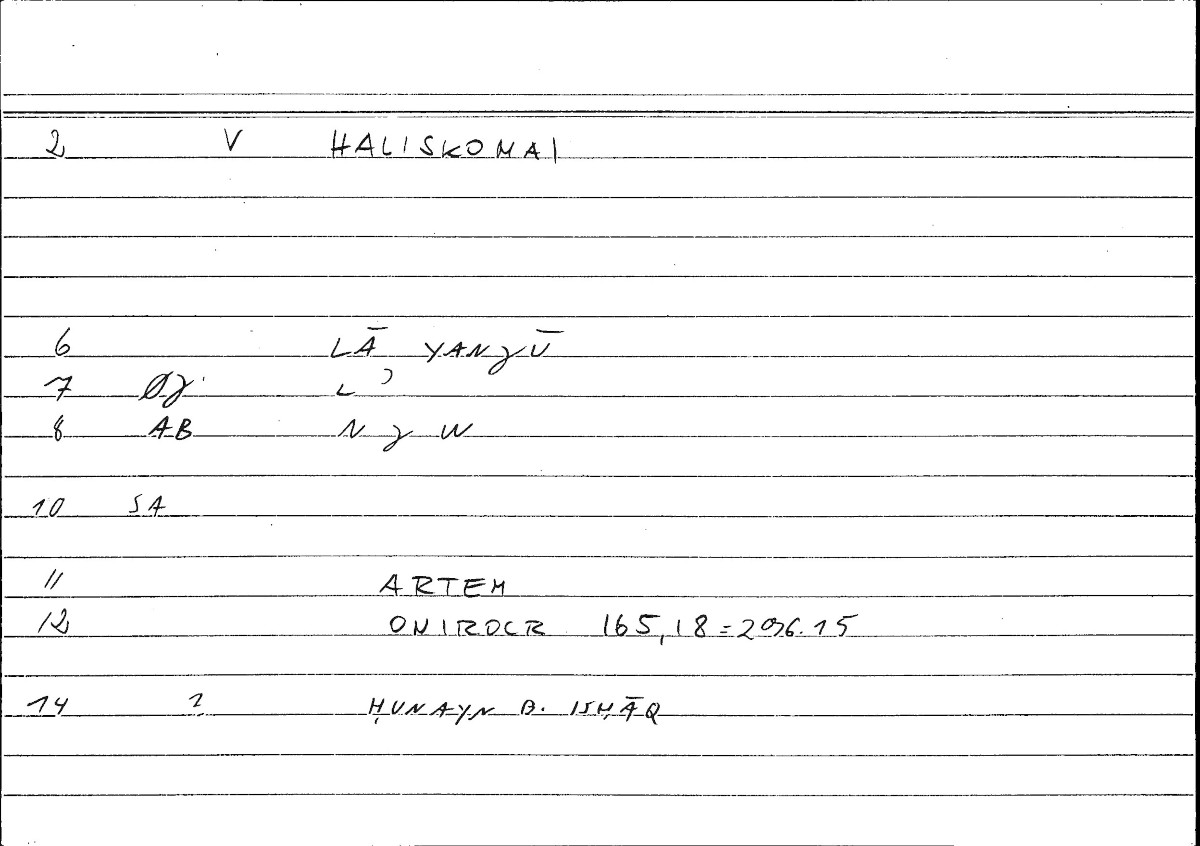 2 V HALISKOMAI
6 LĀ YANǧŪ
7 L ʾ
8 AB N ǧ W
10 SA
11 ARTEM
12 ONIROCR 165,18 = 296.15
14 2 ḤUNAYN B. ISḤĀQ